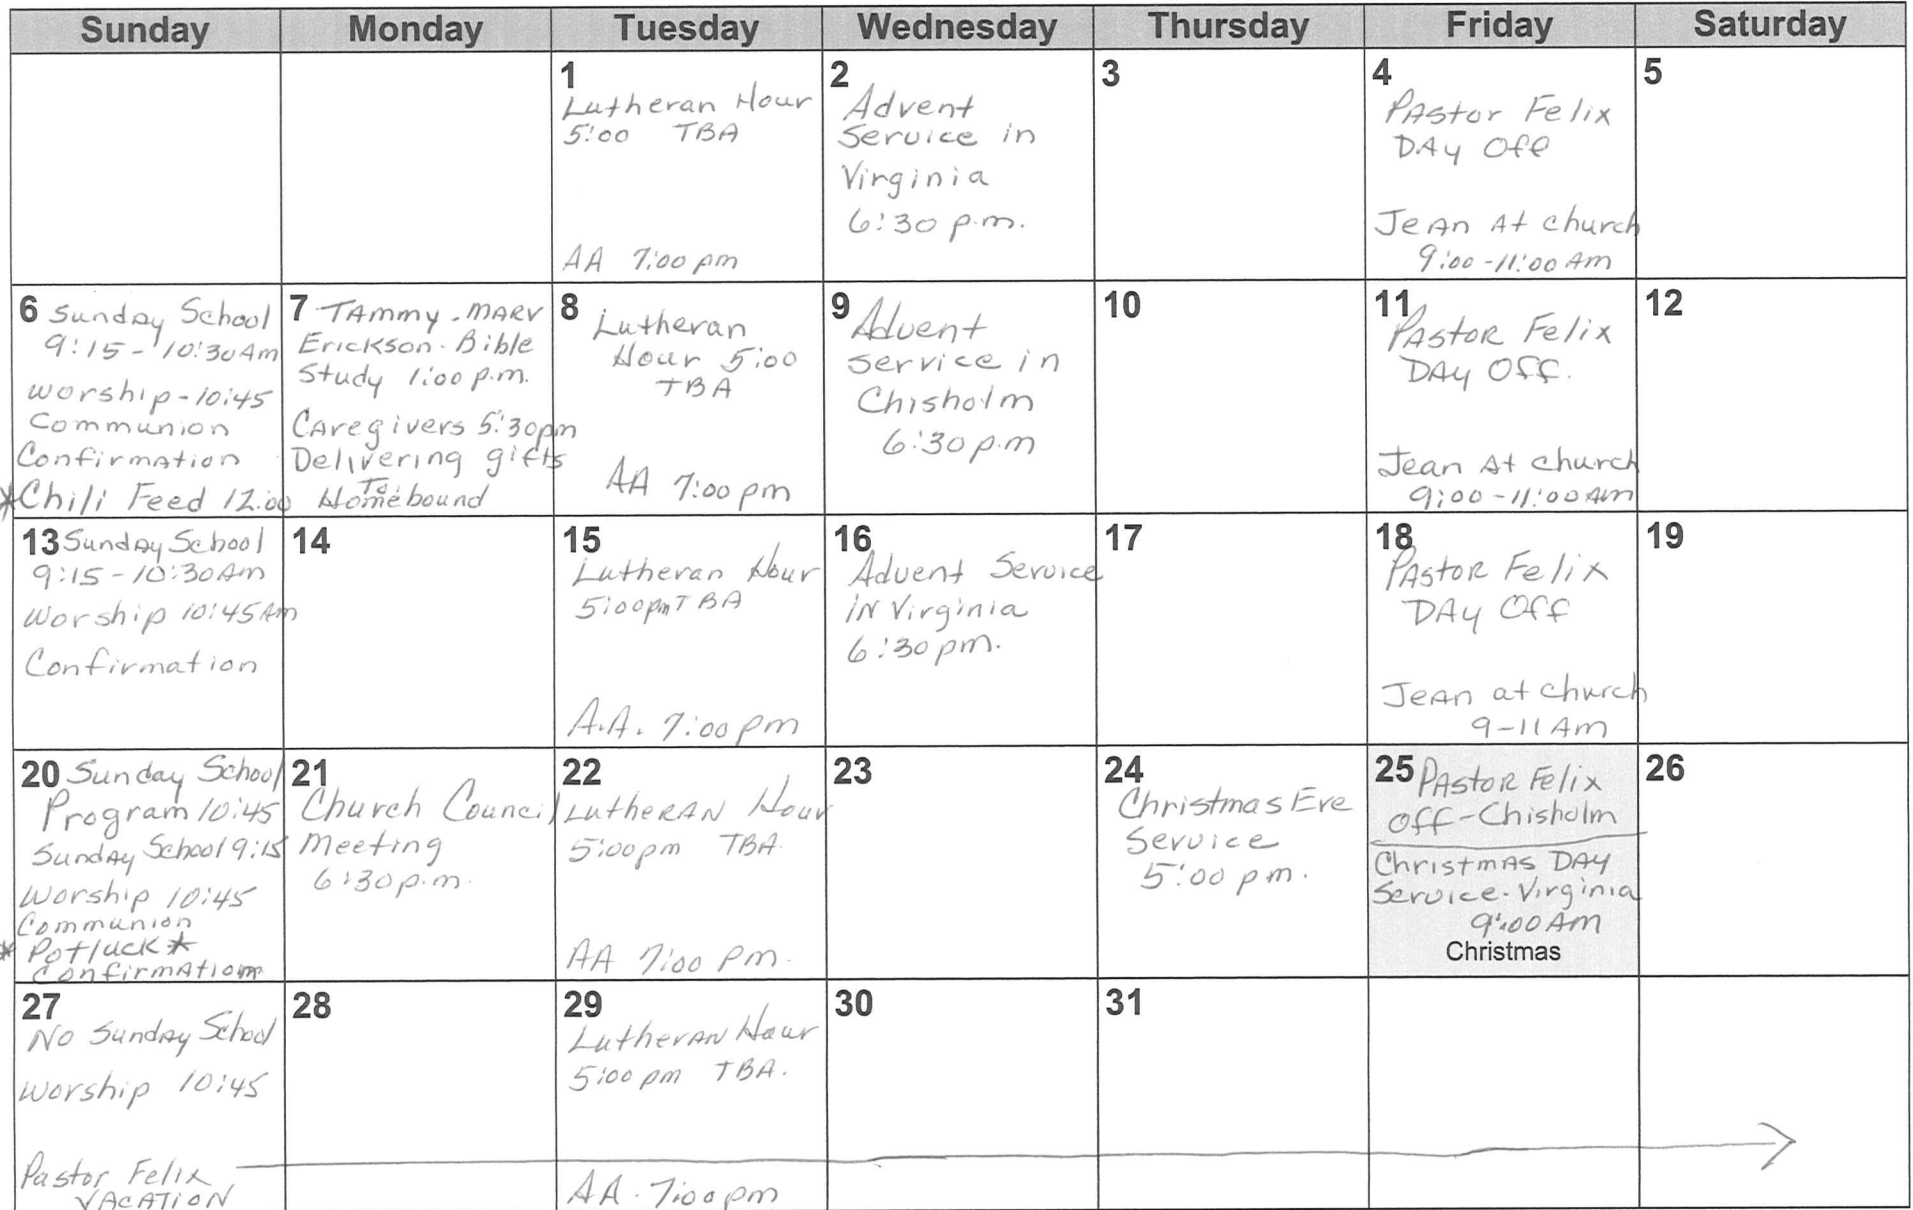 Sunday Monday Tuesday Wednesday Thursday Friday Saturday
1
Lutheran Hour
5:00 TBA
AA 7:00 pm
2
Advent
Service in
Virginia
6:30 p.m.
3
4
Pastor Felix
DAy Off
Jean At church
9:00-11:00 Am
5
6 Sunday School
9:15-10:30 Am
worship-10:45
Communion
Confirmation
*Chili Feed 12:00
7 TAmmy - MARV
Erickson - Bible
Study 1:00 p.m.
Caregivers 5:30pm
Delivering gifts
To
Homebound
8
Lutheran
Hour 5:00
TBA
AA 7:00 pm
9
Advent
service in
Chisholm
6:30 p.m
10
11
Pastor Felix
DAy Off.
Jean At church
9:00-11:00 Am
12
13 Sunday School
9:15-10:30 Am
Worship 10:45 Am
Confirmation
14
15
Lutheran Hour
5:00pm TBA
A.A. 7:00 pm
16
Advent Service
in Virginia
6:30 pm.
17
18
Pastor Felix
DAy Off
Jean at church
9-11 Am
19
20 Sunday School
Program 10:45
Sunday School 9:15
Worship 10:45
Communion
* Potluck *
Confirmation
21
Church Council
Meeting
6:30 p.m.
22
Lutheran Hour
5:00pm TBA.
AA 7:00 pm.
23
24
Christmas Eve
Service
5:00 pm.
25 Pastor Felix
Off-Chisholm
Christmas DAy
Service-Virginia
9:00 Am
Christmas
26
27
No Sunday School
Worship 10:45
Pastor Felix
VACATION
28
29
Lutheran Hour
5:00 pm TBA.
AA. 7:00 pm
30
31